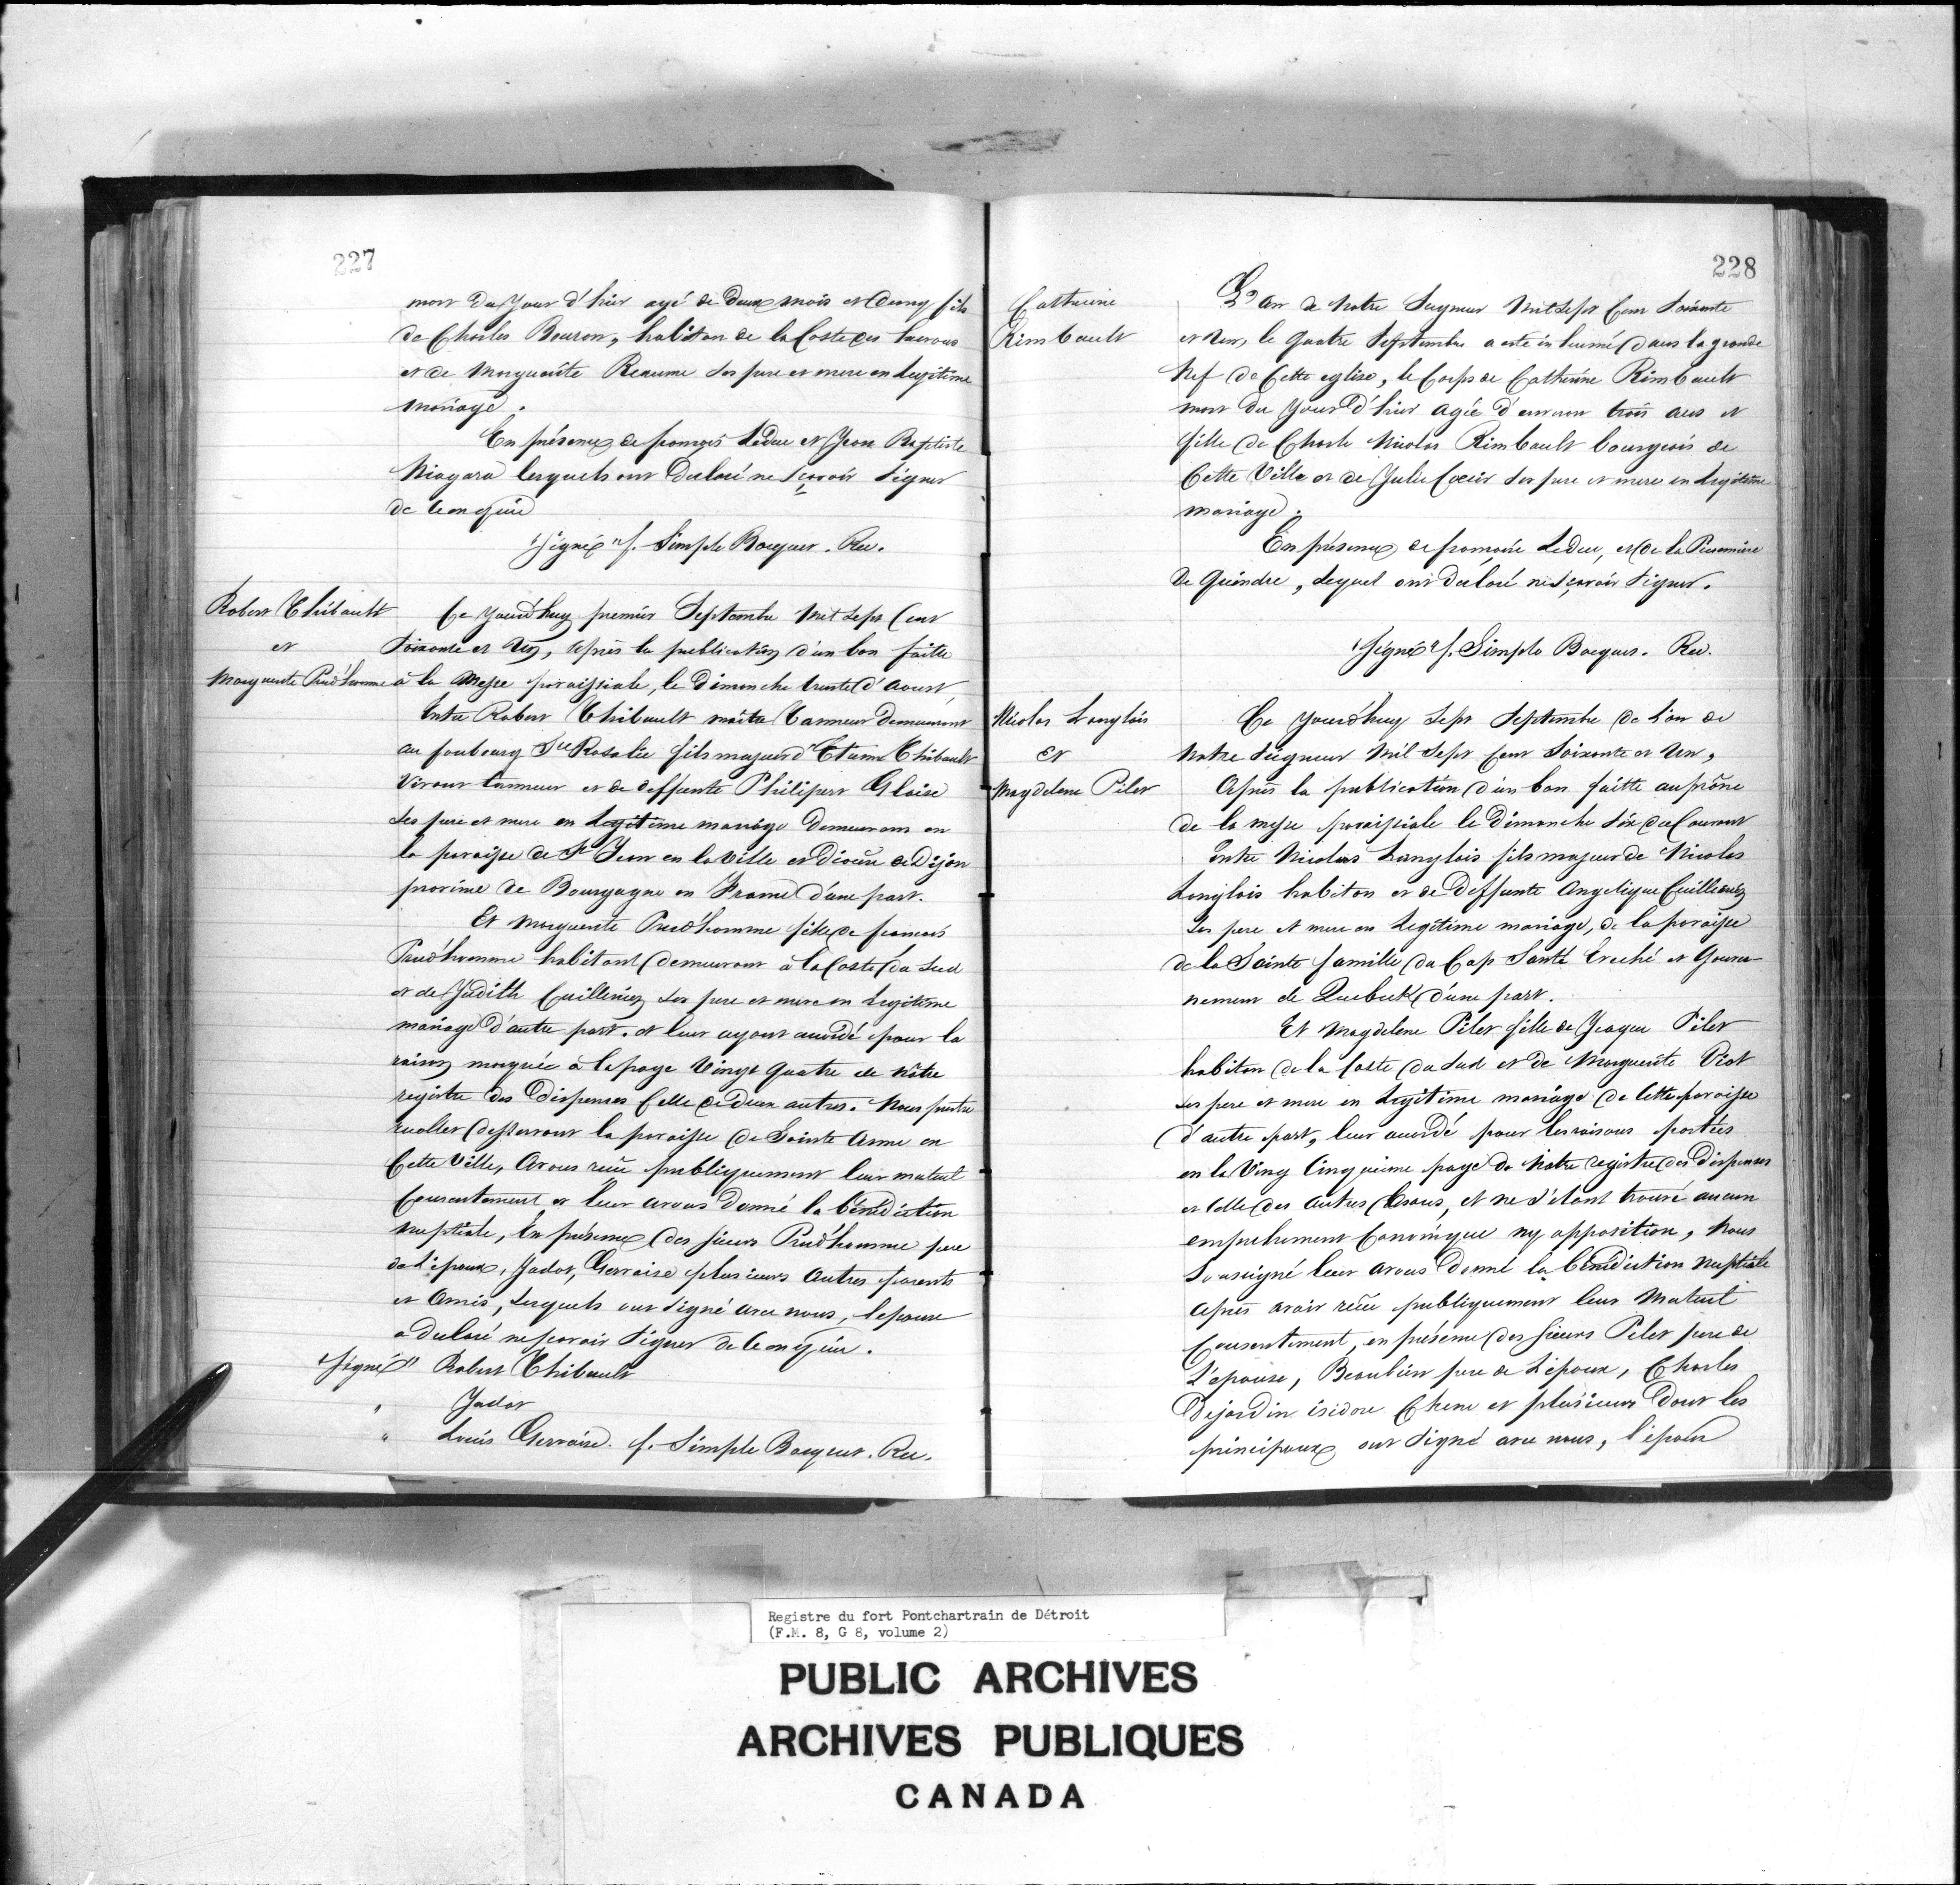 227
mort du Jour d'hier agé de Deux mois et Demy fils
de Charles Bouron, habitan de la Coste des hurons
et de Marguerite Reaume ses pere et mere en Legitime
mariage.
En présence de françois Leduc et Jean Baptiste
Niagara lesquels ont Declaré ne sçavoir signer
de ce enquis
"Signé" f. Simple Bocquet. Rec.
Robert Thibault
et
Marguerite Prud'homme
Ce jourd'huy premier Septembre Mil Sept Cent
Soixante et Un, après la publication d'un ban faitte
à la Messe paroissiale, le Dimanche trente d'Aoust,
Entre Robert Thibault maître Tanneur demeurant
au faubourg Ste Rosalie fils majeur d'Etienne Thibault
Vivant tanneur et de deffunte Philipert Gloise
ses pere et mere en Legitime mariage Demeurans en
la paroisse de St Jean en la ville et Diocèse de Dijon
province de Bourgogne en France d'une part.
Et Marguerite Prud'homme fille de françois
Prud'homme habitant demeurant à la Coste du Sud
et de Judith Cuillerier ses pere et mere en Legitime
mariage d'autre part. et leur ayant accordé pour la
raison marquée à la page Vingt quatre de Nôtre
registre des Dispenses Celle de deux autres. Nous prêtre
recollet desservant la paroisse de Sainte Anne en
Cette Ville, Avons reçu publiquement leur mutuel
Consentement et leur avons donné la bénédiction
nuptiale, En présence des sieurs Prud'homme pere
de L'epouse, Jadot, Gervaise plusieurs Autres parents
et Amis, lesquels ont signé avec nous, l'epouse
a declaré ne sçavoir signer de ce enquise.
"Signé" Robert Thibault
" Jadot
" Louis Gervaise. f. Simple Bocquet. Rec.
228
Catherine
Rimbault
L'an de Notre Seigneur Mil Sept Cent Soixante
et Un, le Quatre Septembre a esté inhumé dans la grande
Nef de Cette eglise, le Corps de Catherine Rimbault
mort du Jour d'hier agée d'environ trois ans et
fille de Charle Nicolas Rimbault bourgeois de
Cette Ville et de Julie Coeur ses pere et mere en Legitime
mariage.
En présence de françois Leduc, et de la
De Guindre, Lequel ont declaré ne sçavoir signer.
"Signé" f. Simple Bocquet. Rec.
Nicolas Langlois
Et
Magdelene Pilet
Ce jourd'huy Sept Septembre de L'an de
Notre Seigneur Mil Sept Cent Soixante et Un,
Après la publication d'un ban faitte au prône
de la messe paroissiale le Dimanche Six du Courant
Entre Nicolas Langlois fils majeur de Nicolas
Langlois habitan et de Deffunte Angelique Cuillerier
ses pere et mere en Legitime mariage, de la paroisse
de la Sainte famille du Cap Santé Eveché et Gouver-
nement de Quebeck d'une part.
Et Magdelene Pilet fille de Jacque Pilet
habitan de la Coste du Sud et de Marguerite Viot
ses pere et mere en Legitime mariage de Cette paroisse
d'autre part, leur accordé pour les raisons portées
en la Ving Cinquieme page de Notre registre des dispenses
et Celle des autres bans, et ne s'étant trouvé aucun
empechement Canonique ny opposition, Nous
Soussigné leur avons Donné la bénédiction Nuptiale
après avoir reçu publiquement leur Mutuel
Consentement, en présence des Sieurs Pilet pere de
L'épouse, Beaubien pere de L'époux, Charles
Dejardin isidore Chene et plusieurs Dont les
principaux ont signé avec nous, l'époux
Registre du fort Pontchartrain de Détroit
(F.M. 8, G 8, volume 2)
PUBLIC ARCHIVES
ARCHIVES PUBLIQUES
CANADA